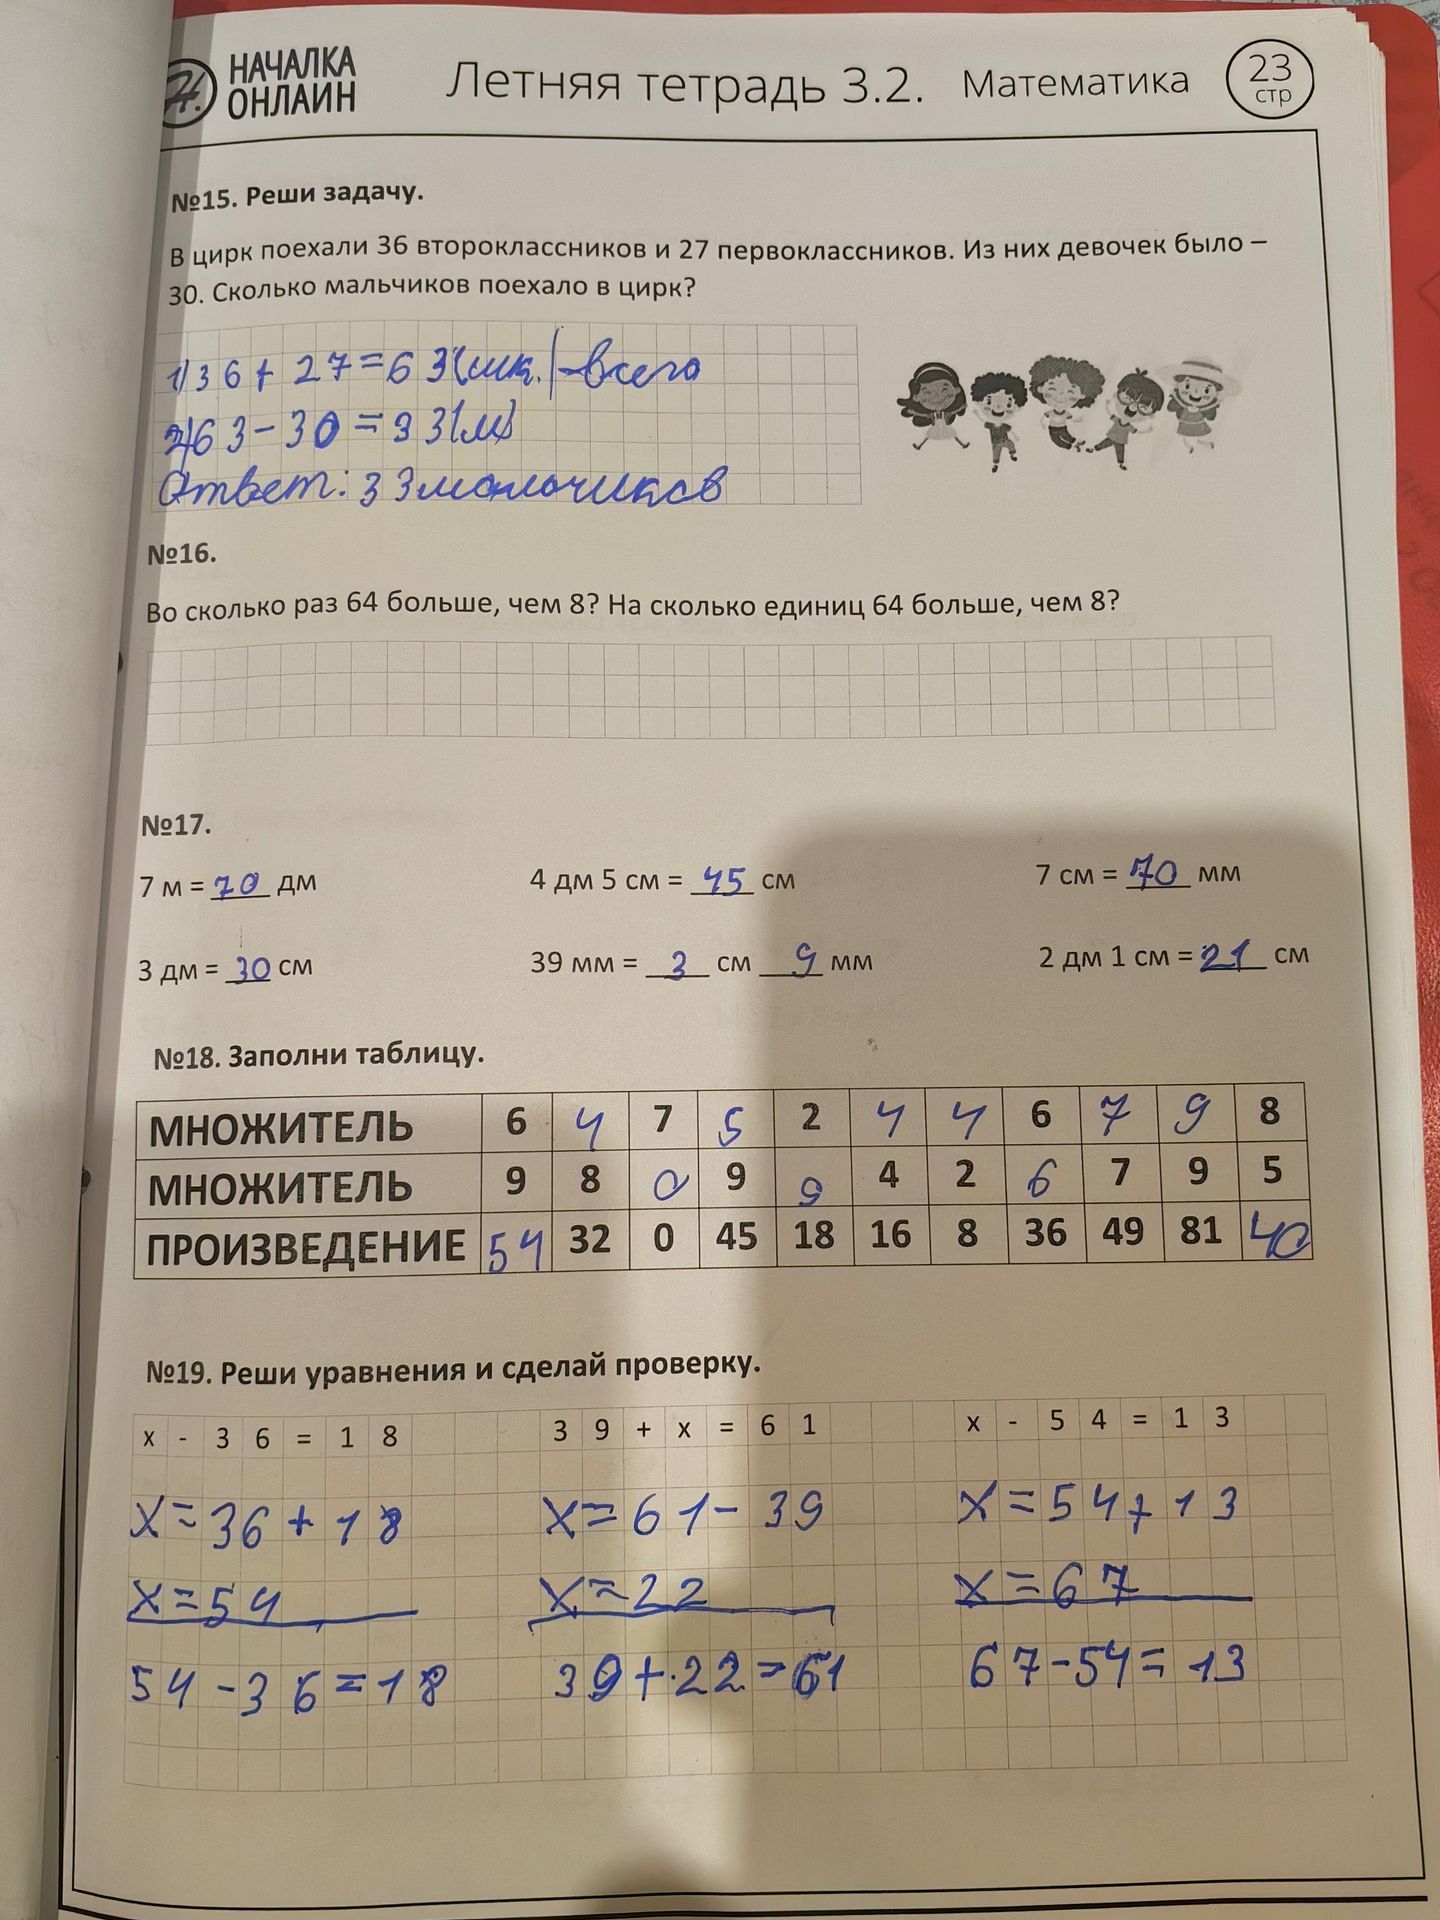 НАЧАЛКА
ОНЛАЙН
Летняя тетрадь 3.2. Математика 23 стр
№15. Реши задачу.
В цирк поехали 36 второклассников и 27 первоклассников. Из них девочек было –
30. Сколько мальчиков поехало в цирк?
1) 36 + 27 = 63 (шк.) - всего
2) 63 - 30 = 33 (м)
Ответ: 33 мальчиков
№16.
Во сколько раз 64 больше, чем 8? На сколько единиц 64 больше, чем 8?
№17.
7 м = 70 дм 4 дм 5 см = 45 см 7 см = 70 мм
3 дм = 30 см 39 мм = 3 см 9 мм 2 дм 1 см = 21 см
№18. Заполни таблицу.
МНОЖИТЕЛЬ 6 4 7 5 2 4 4 6 7 9 8
МНОЖИТЕЛЬ 9 8 0 9 9 4 2 6 7 9 5
ПРОИЗВЕДЕНИЕ 54 32 0 45 18 16 8 36 49 81 40
№19. Реши уравнения и сделай проверку.
х - 3 6 = 1 8 3 9 + х = 6 1 х - 5 4 = 1 3
х = 36 + 18 х = 61 - 39 х = 54 + 13
х = 54 х = 22 х = 67
54 - 36 = 18 39 + 22 = 61 67 - 54 = 13